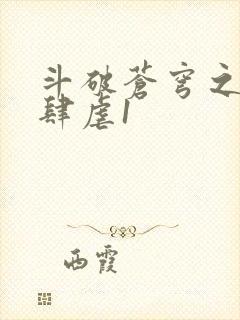 斗破苍穹之
肆虐1
西霞